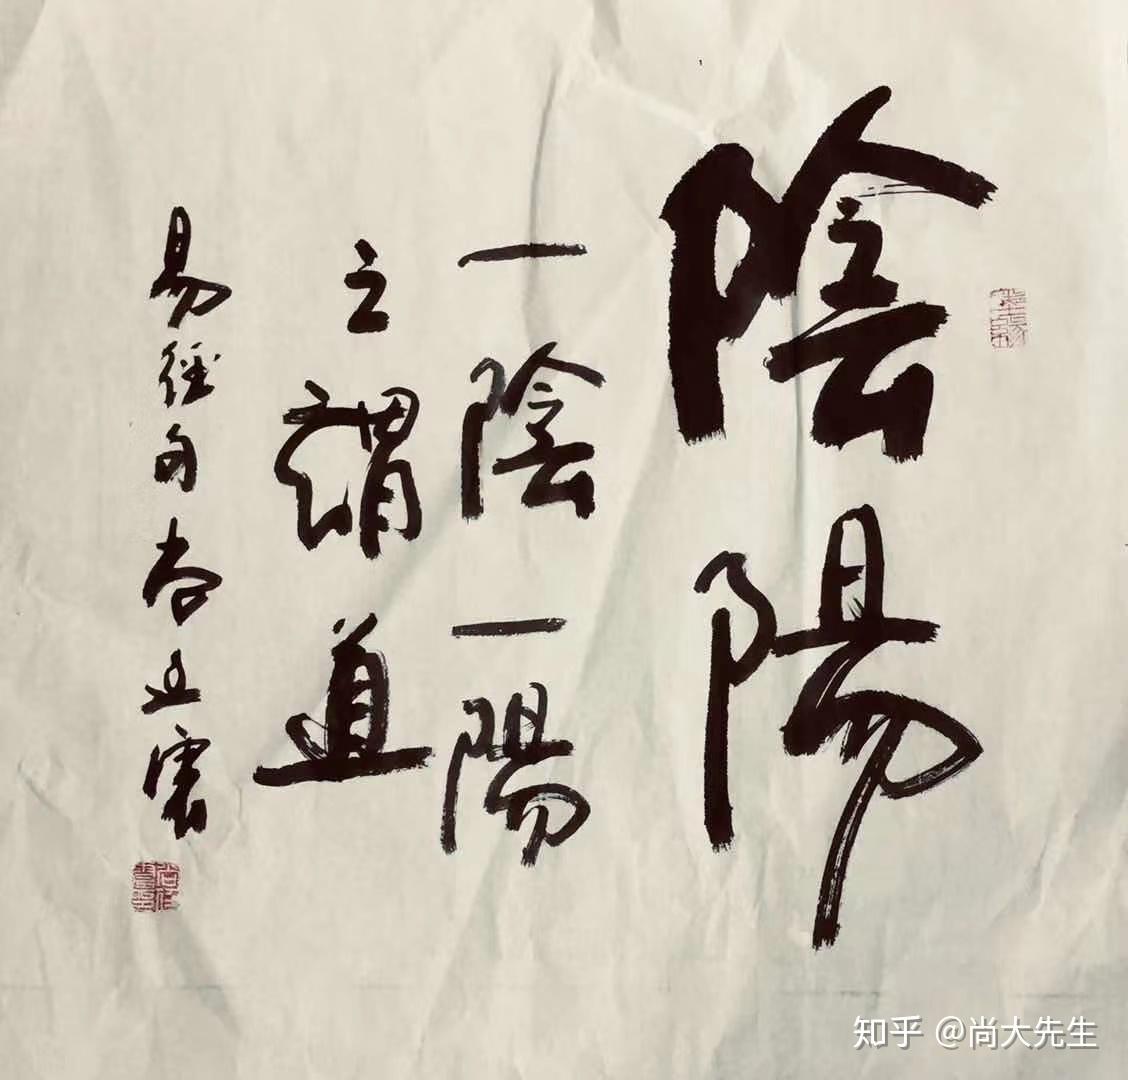 陰陽
一陰一陽
之謂道
易經句尚
知乎 @尚大先生